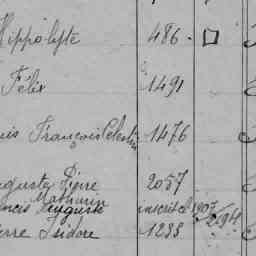 Hippolyte 486.
Félix 1491
François Célestin 1476
Auguste Pierre 2057
Mathurin
Francis Auguste inscrit cl. 1907
Pierre Isidore 1233